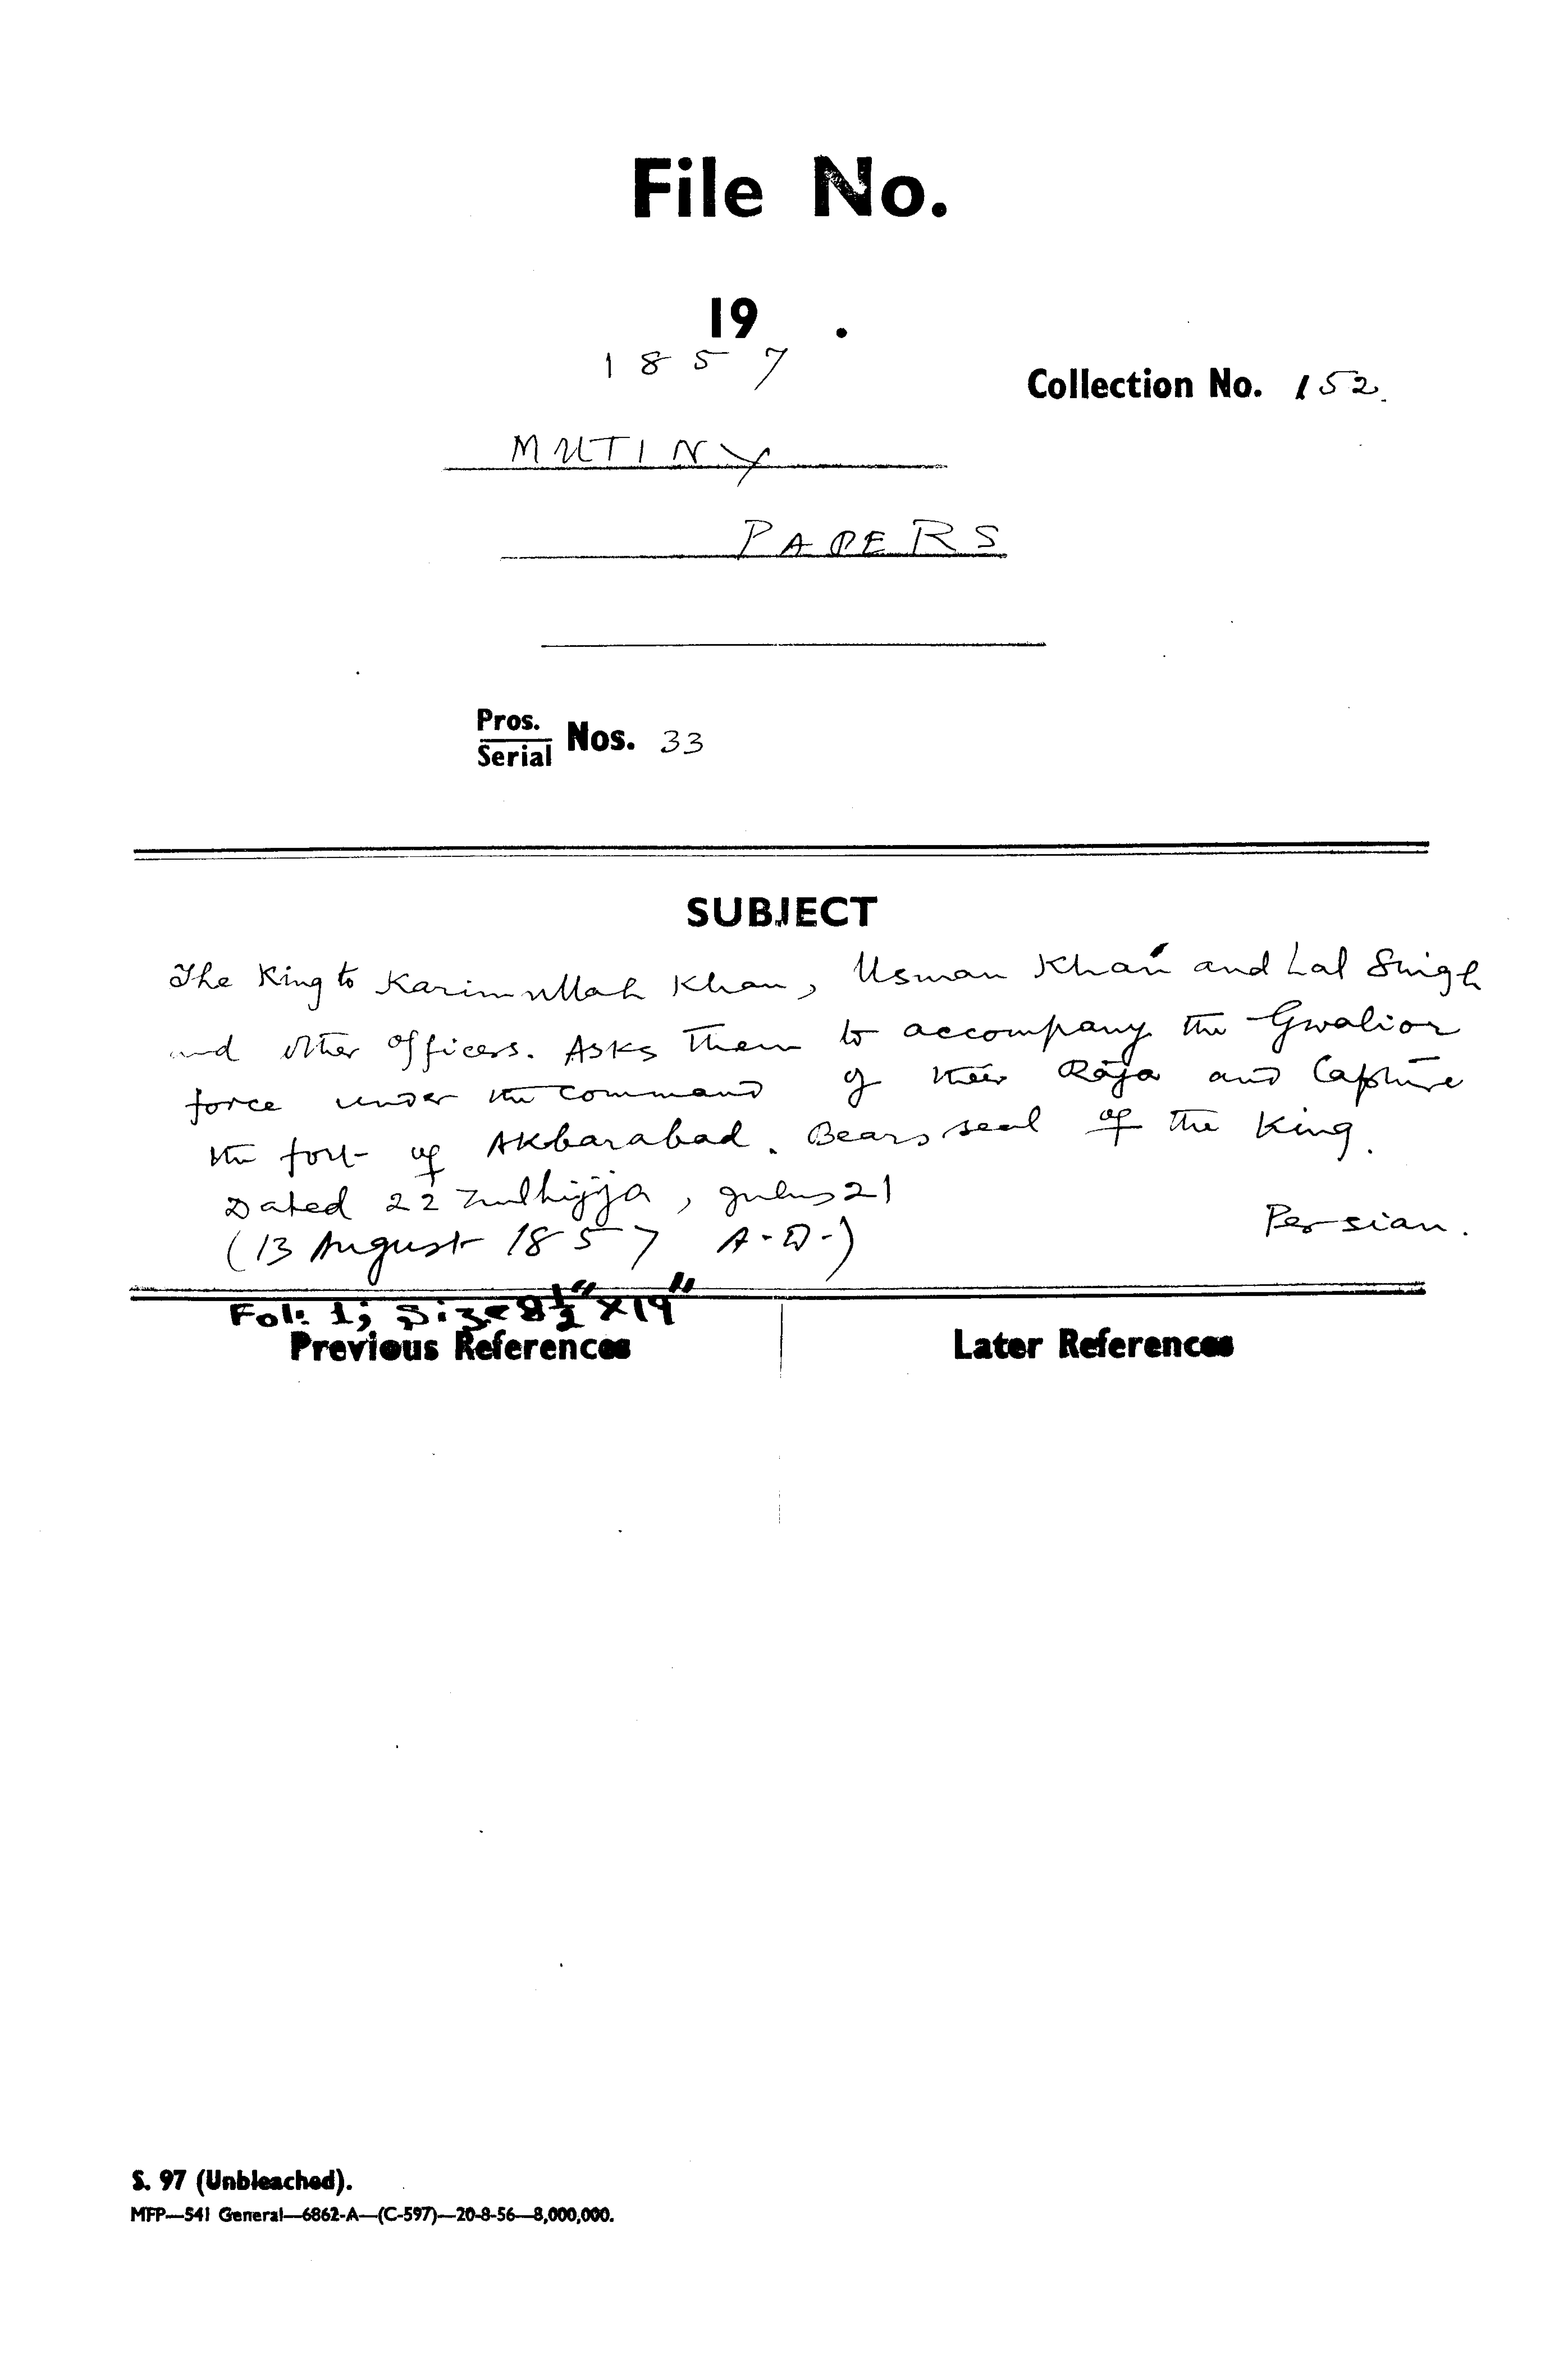 File No.
19 .
1857
Collection No. 152.
MUTINY
PAPERS
Pros.
Serial Nos. 33
SUBJECT
The King to Karimullah Khan, Usman Khan and Lal Singh
and other officers. Asks them to accompany the Gwalior
force under the command of their Raja and Capture
the fort of Akbarabad. Bears seal of the King.
Dated 22 Zulhijja, Julus 21
Persian.
(13 August 1857 A.D.)
Fol: 1; Size 8½" X 19"
Previous References
Later References
S. 97 (Unbleached).
MFP—541 General—6862-A—(C-597)—20-8-56—8,000,000.